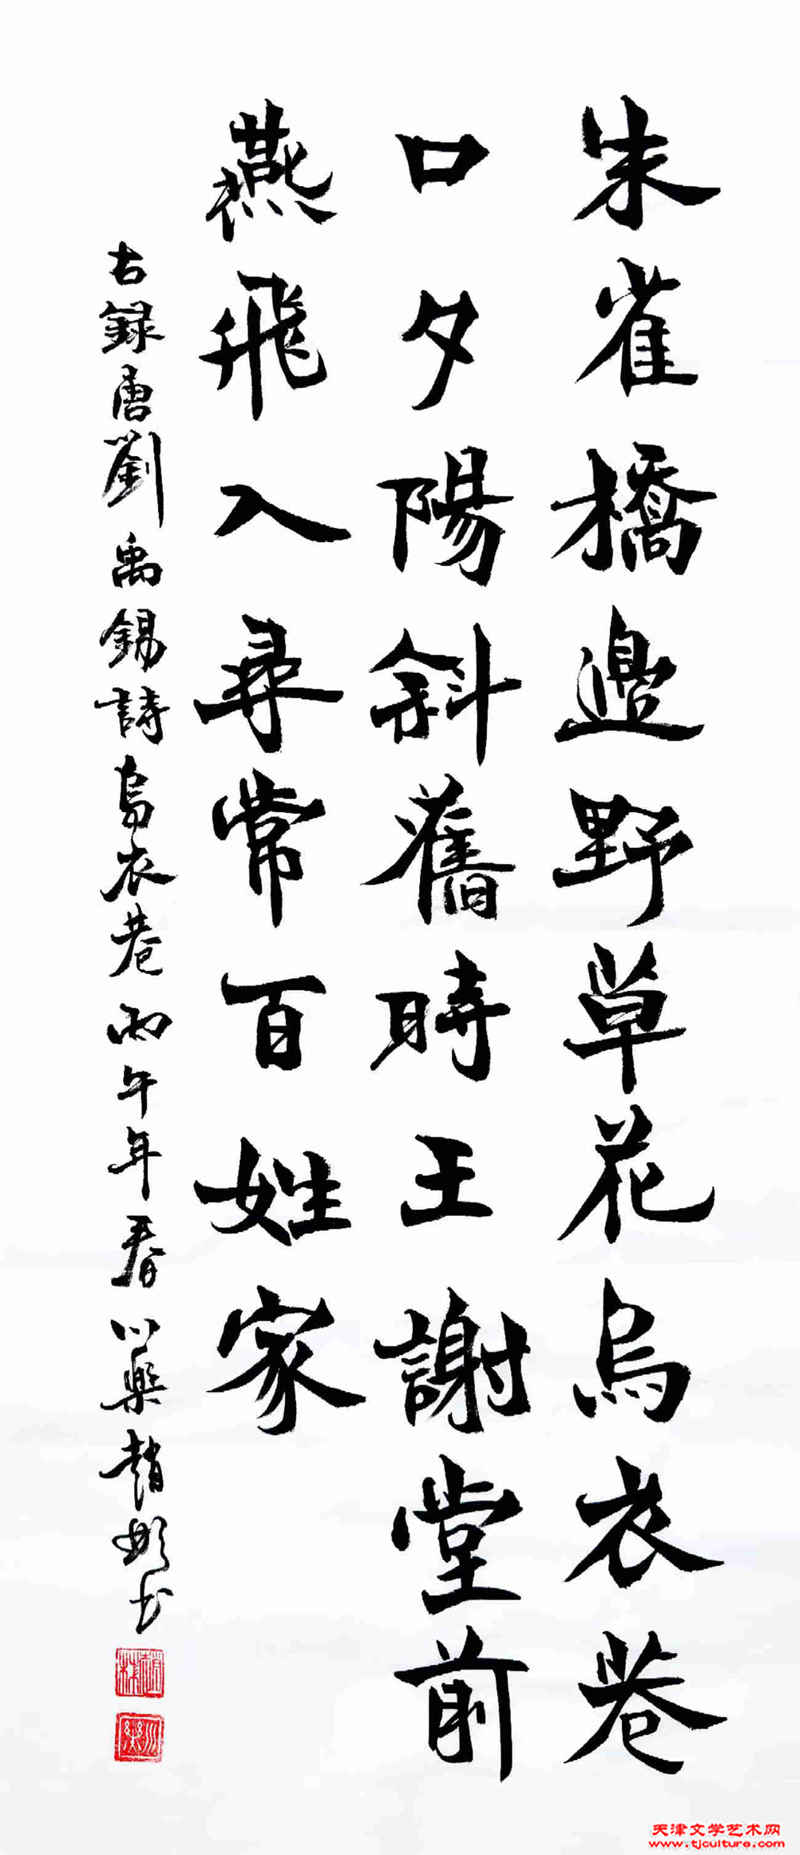 朱雀橋邊野草花烏衣巷
口夕陽斜舊時王謝堂前
燕飛入尋常百姓家
右録唐劉禹錫詩烏衣巷丙午年春小樂趙彬书
天津文学艺术网
www.tjculture.com